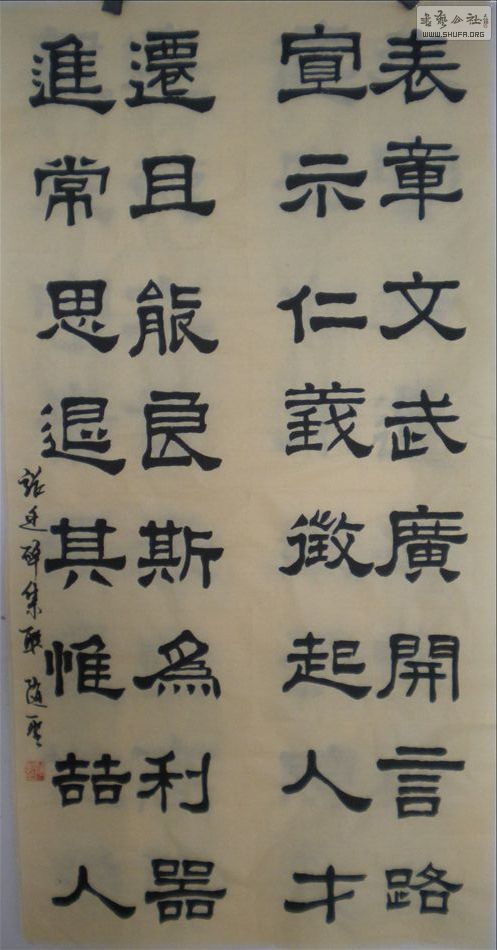 表章文武廣開言路
宣示仁義徵起人才
遷且能良斯爲利器
進常思退其惟喆人
张迁碑集联
书艺公社
WWW.SHUFA.ORG